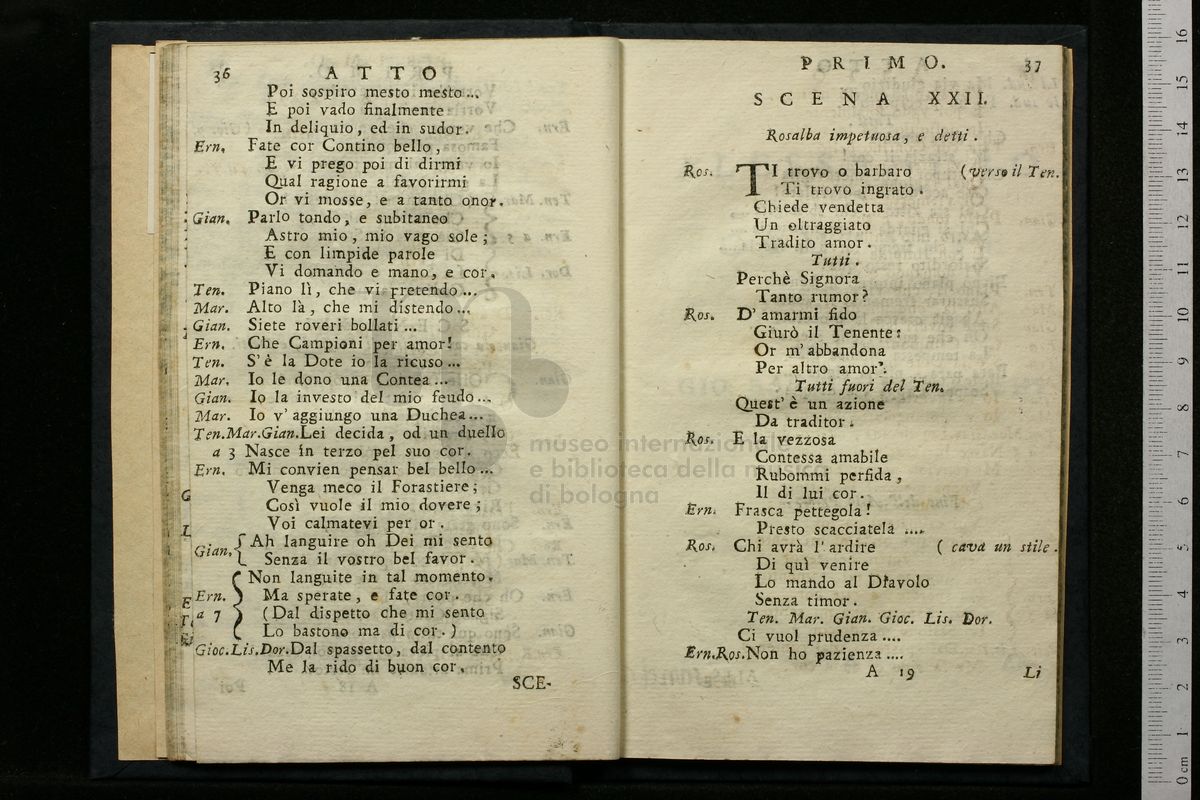 36 ATTO
Poi sospiro mesto mesto...
E poi vado finalmente
In deliquio, ed in sudor.
Ern. Fate cor Contino bello,
E vi prego poi di dirmi
Qual ragione a favorirmi
Or vi mosse, e a tanto onor.
Gian. Parlo tondo, e subitaneo
Astro mio, mio vago sole;
E con limpide parole
Vi domando e mano, e cor.
Ten. Piano lì, che vi pretendo...
Mar. Alto là, che mi distendo...
Gian. Siete roveri bollati...
Ern. Che Campioni per amor!
Ten. S'è la Dote io la ricuso...
Mar. Io le dono una Contea...
Gian. Io la investo del mio feudo...
Mar. Io v'aggiungo una Duchea...
Ten.Mar.Gian.Lei decida, od un duello
a 3 Nasce in terzo pel suo cor.
Ern. Mi convien pensar bel bello...
Venga meco il Forastiere;
Così vuole il mio dovere;
Voi calmatevi per or.
Gian. { Ah languire oh Dei mi sento
Senza il vostro bel favor.
Ern. { Non languite in tal momento.
Ma sperate, e fate cor.
a 7 (Dal dispetto che mi sento
Lo bastono ma di cor.)
Gioc.Lis.Dor.Dal spassetto, dal contento
Me la rido di buon cor.
SCE-
PRIMO. 37
SCENA XXII.
Rosalba impetuosa, e detti.
Ros. TI trovo o barbaro (verso il Ten.
Ti trovo ingrato.
Chiede vendetta
Un oltraggiato
Tradito amor.
Tutti.
Perchè Signora
Tanto rumor?
Ros. D'amarmi fido
Giurò il Tenente:
Or m'abbandona
Per altro amor.
Tutti fuori del Ten.
Quest'è un azione
Da traditor.
Ros. E la vezzosa
Contessa amabile
Rubommi perfida,
Il di lui cor.
Ern. Frasca pettegola!
Presto scacciatela ....
Ros. Chi avrà l'ardire (cava un stile.
Di quì venire
Lo mando al Diavolo
Senza timor.
Ten. Mar. Gian. Gioc. Lis. Dor.
Ci vuol prudenza ....
Ern.Ros.Non ho pazienza ....
A 19 Li
museo internazionale
e biblioteca della musica
di bologna
0 cm 1 2 3 4 5 6 7 8 9 10 11 12 13 14 15 16